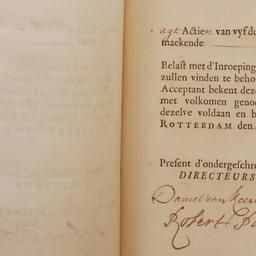 agt Actien van vyf du
maekende
Belast met d'Inroeping
zullen vinden te beho
Acceptant bekent deze
met volkomen genoe
dezelve voldaan en b
ROTTERDAM den
Present d'ondergeschre
DIRECTEURS
Daniel van
Robert